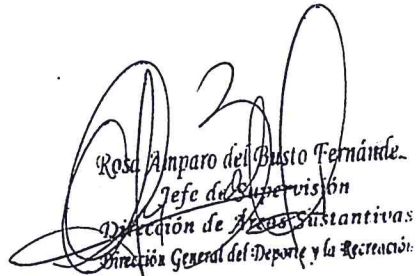 Rosa Amparo del Busto Fernánde
Jefe de Supervisión
Dirección de Áreas Sustantivas
Dirección General del Deporte y la Recreación